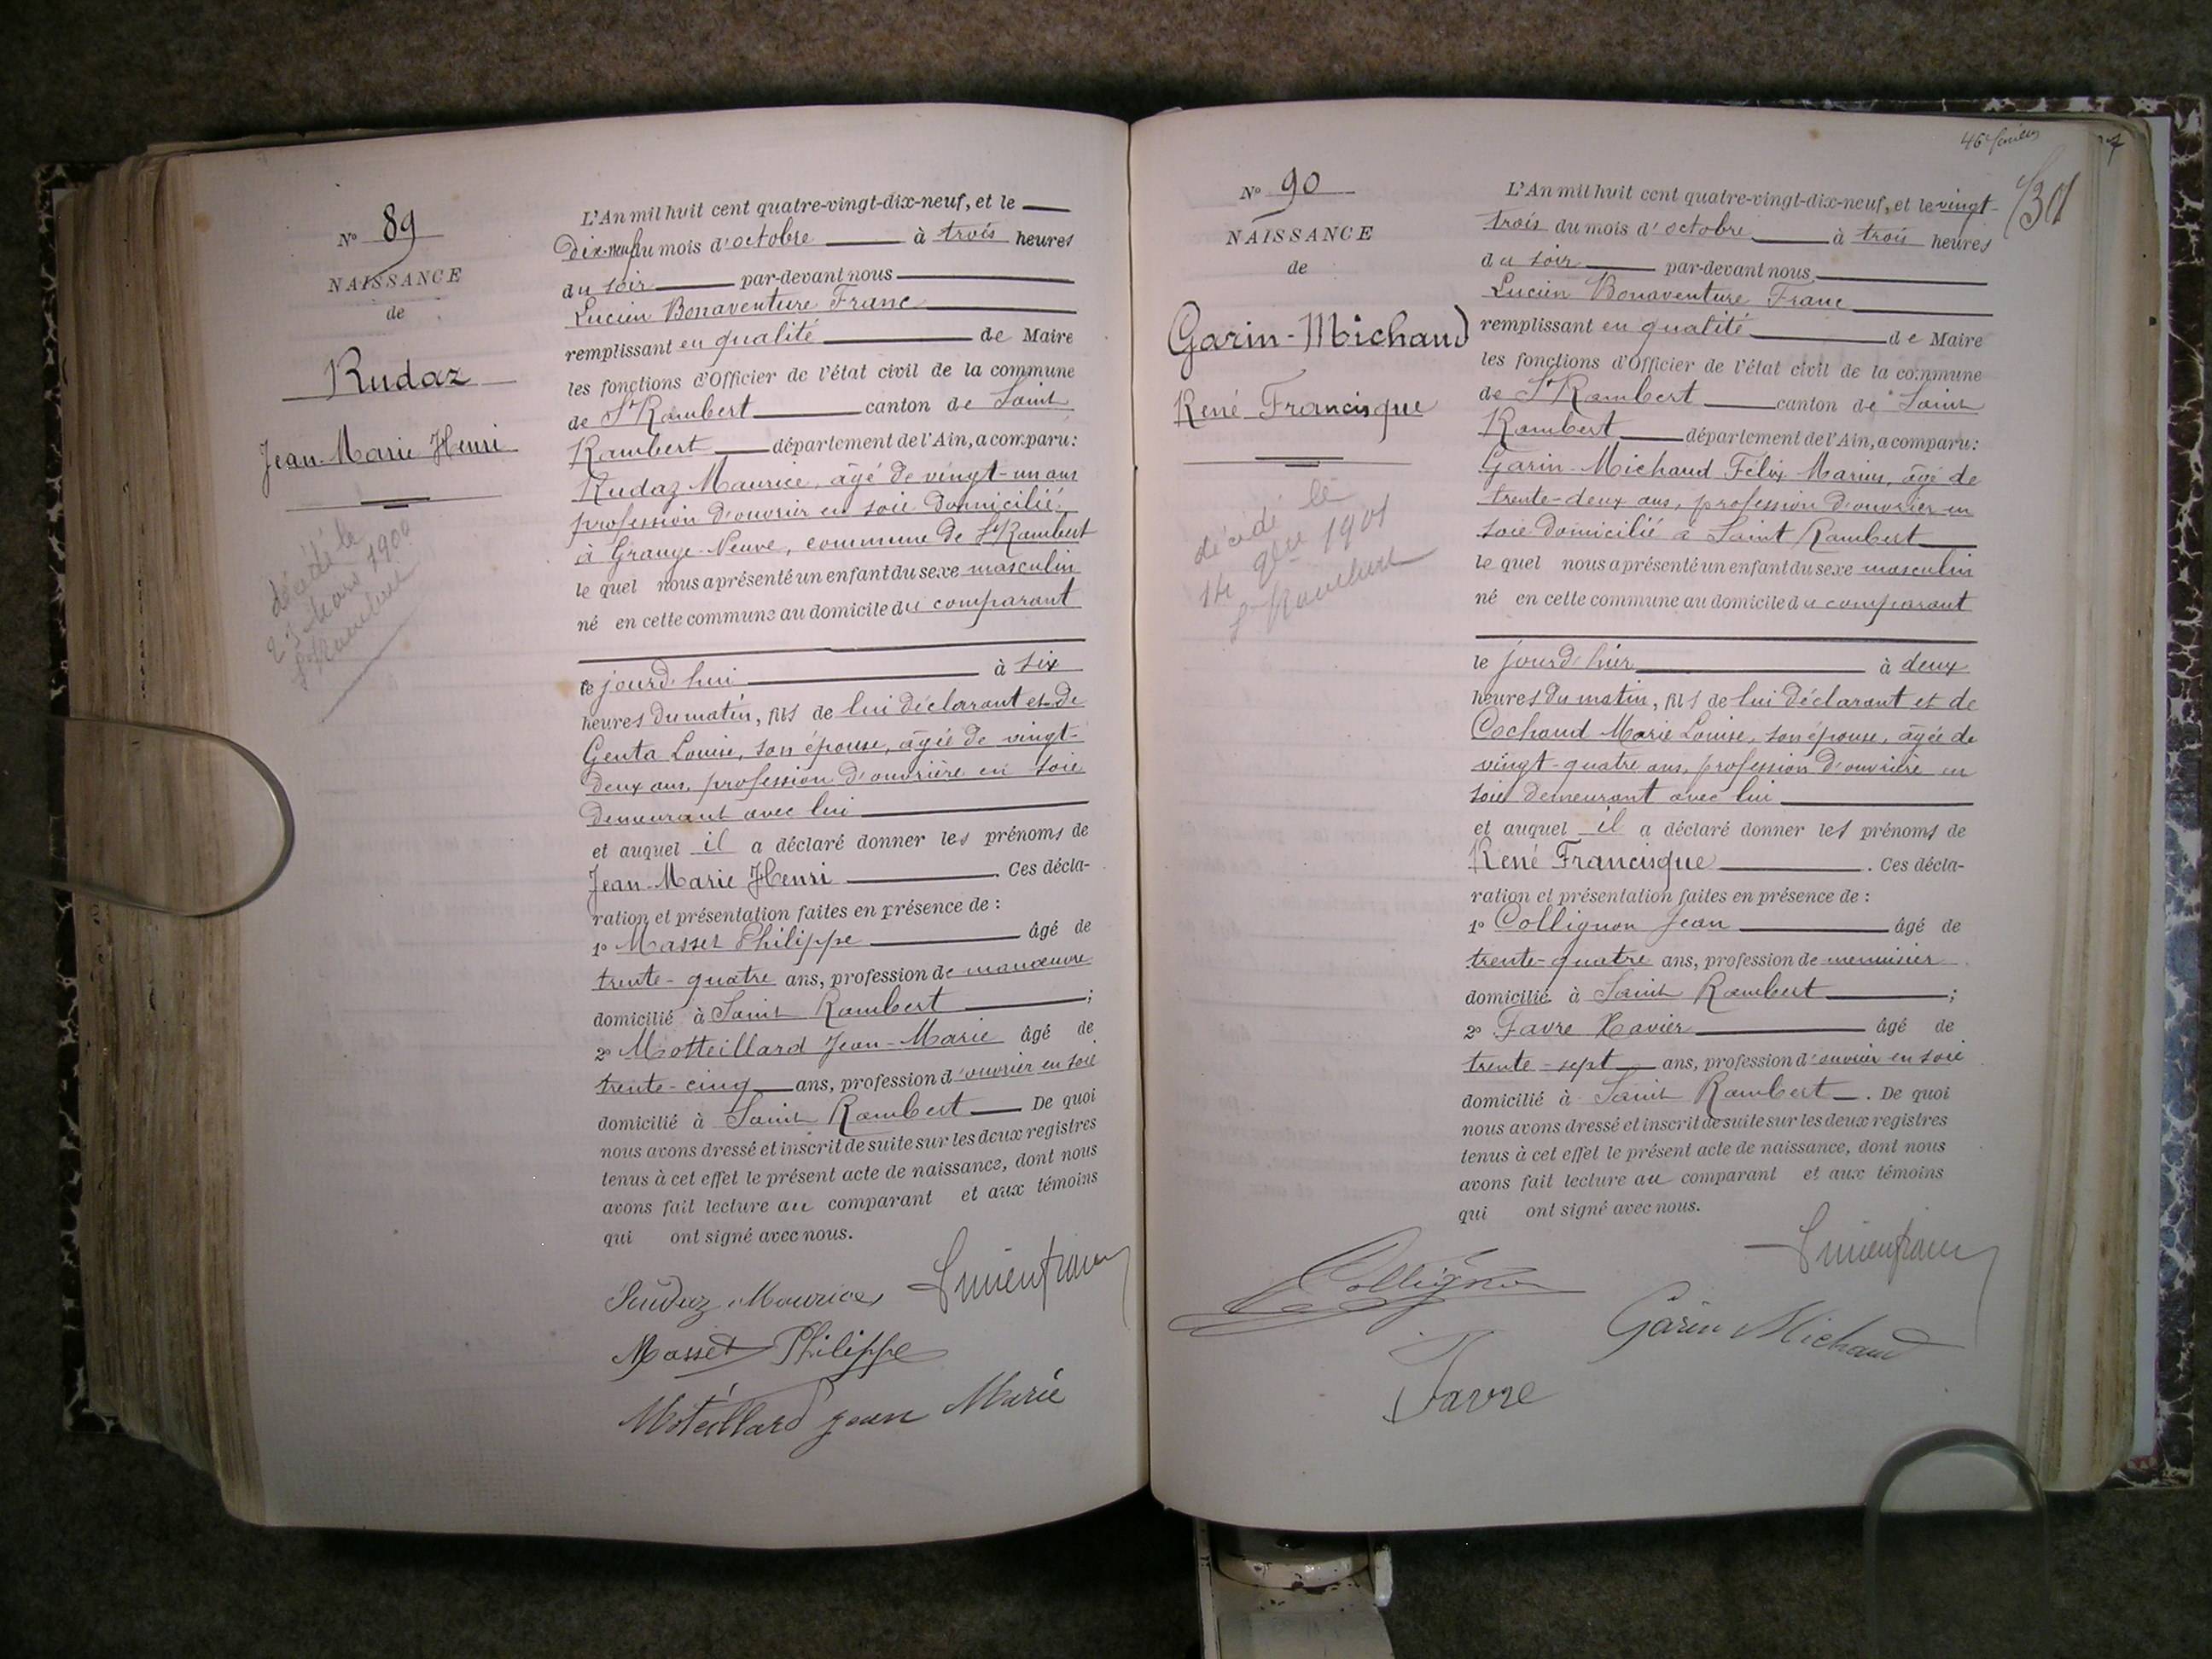 N° 89
NAISSANCE
de
Rudaz
Jean-Marie Henri
décédé le
mars 1900
St Rambert
L'An mil huit cent quatre-vingt-dix-neuf, et le
Dix-neuf du mois d'octobre à trois heures
du soir par-devant nous
Lucien Bonaventure Franc
remplissant en qualité de Maire
les fonctions d'Officier de l'état civil de la commune
de St Rambert canton de Saint
Rambert département de l'Ain, a comparu:
Rudaz Maurice, âgé de vingt-un ans
profession d'ouvrier en soie domicilié
à Grange-Neuve, commune de St Rambert
le quel nous a présenté un enfant du sexe masculin
né en cette commune au domicile du comparant
le jourd'hui à six
heures du matin, fils de lui déclarant et de
Genta Louise, son épouse, âgée de vingt-
deux ans, profession d'ouvrière en soie
demeurant avec lui
et auquel il a déclaré donner les prénoms de
Jean-Marie Henri. Ces décla-
ration et présentation faites en présence de :
1° Masset Philippe âgé de
trente-quatre ans, profession de manœuvre
domicilié à Saint Rambert ;
2° Motteillard Jean-Marie âgé de
trente-cinq ans, profession d'ouvrier en soie
domicilié à Saint Rambert De quoi
nous avons dressé et inscrit de suite sur les deux registres
tenus à cet effet le présent acte de naissance, dont nous
avons fait lecture au comparant et aux témoins
qui ont signé avec nous.
Rudaz Maurice Lucien Franc
Masset Philippe
Moteillard jean Marie
46e
N° 90
NAISSANCE
de
Garin-Michaud
René Francisque
décédé le
14 9bre 1901
St Rambert
L'An mil huit cent quatre-vingt-dix-neuf, et le vingt-
trois du mois d'octobre à trois heures
du soir par-devant nous
Lucien Bonaventure Franc
remplissant en qualité de Maire
les fonctions d'Officier de l'état civil de la commune
de St Rambert canton de Saint
Rambert département de l'Ain, a comparu:
Garin-Michaud Félix Marius, âgé de
trente-deux ans, profession d'ouvrier en
soie domicilié à Saint Rambert
le quel nous a présenté un enfant du sexe masculin
né en cette commune au domicile du comparant
le jourd'hier à deux
heures du matin, fils de lui déclarant et de
Cochand Marie Louise, son épouse, âgée de
vingt-quatre ans, profession d'ouvrière en
soie demeurant avec lui
et auquel il a déclaré donner les prénoms de
René Francisque. Ces décla-
ration et présentation faites en présence de :
1° Collignon Jean âgé de
trente-quatre ans, profession de menuisier
domicilié à Saint Rambert ;
2° Favre Xavier âgé de
trente-sept ans, profession d'ouvrier en soie
domicilié à Saint Rambert. De quoi
nous avons dressé et inscrit de suite sur les deux registres
tenus à cet effet le présent acte de naissance, dont nous
avons fait lecture au comparant et aux témoins
qui ont signé avec nous.
Lucien Franc
Collignon
Garin Michaud
Favre